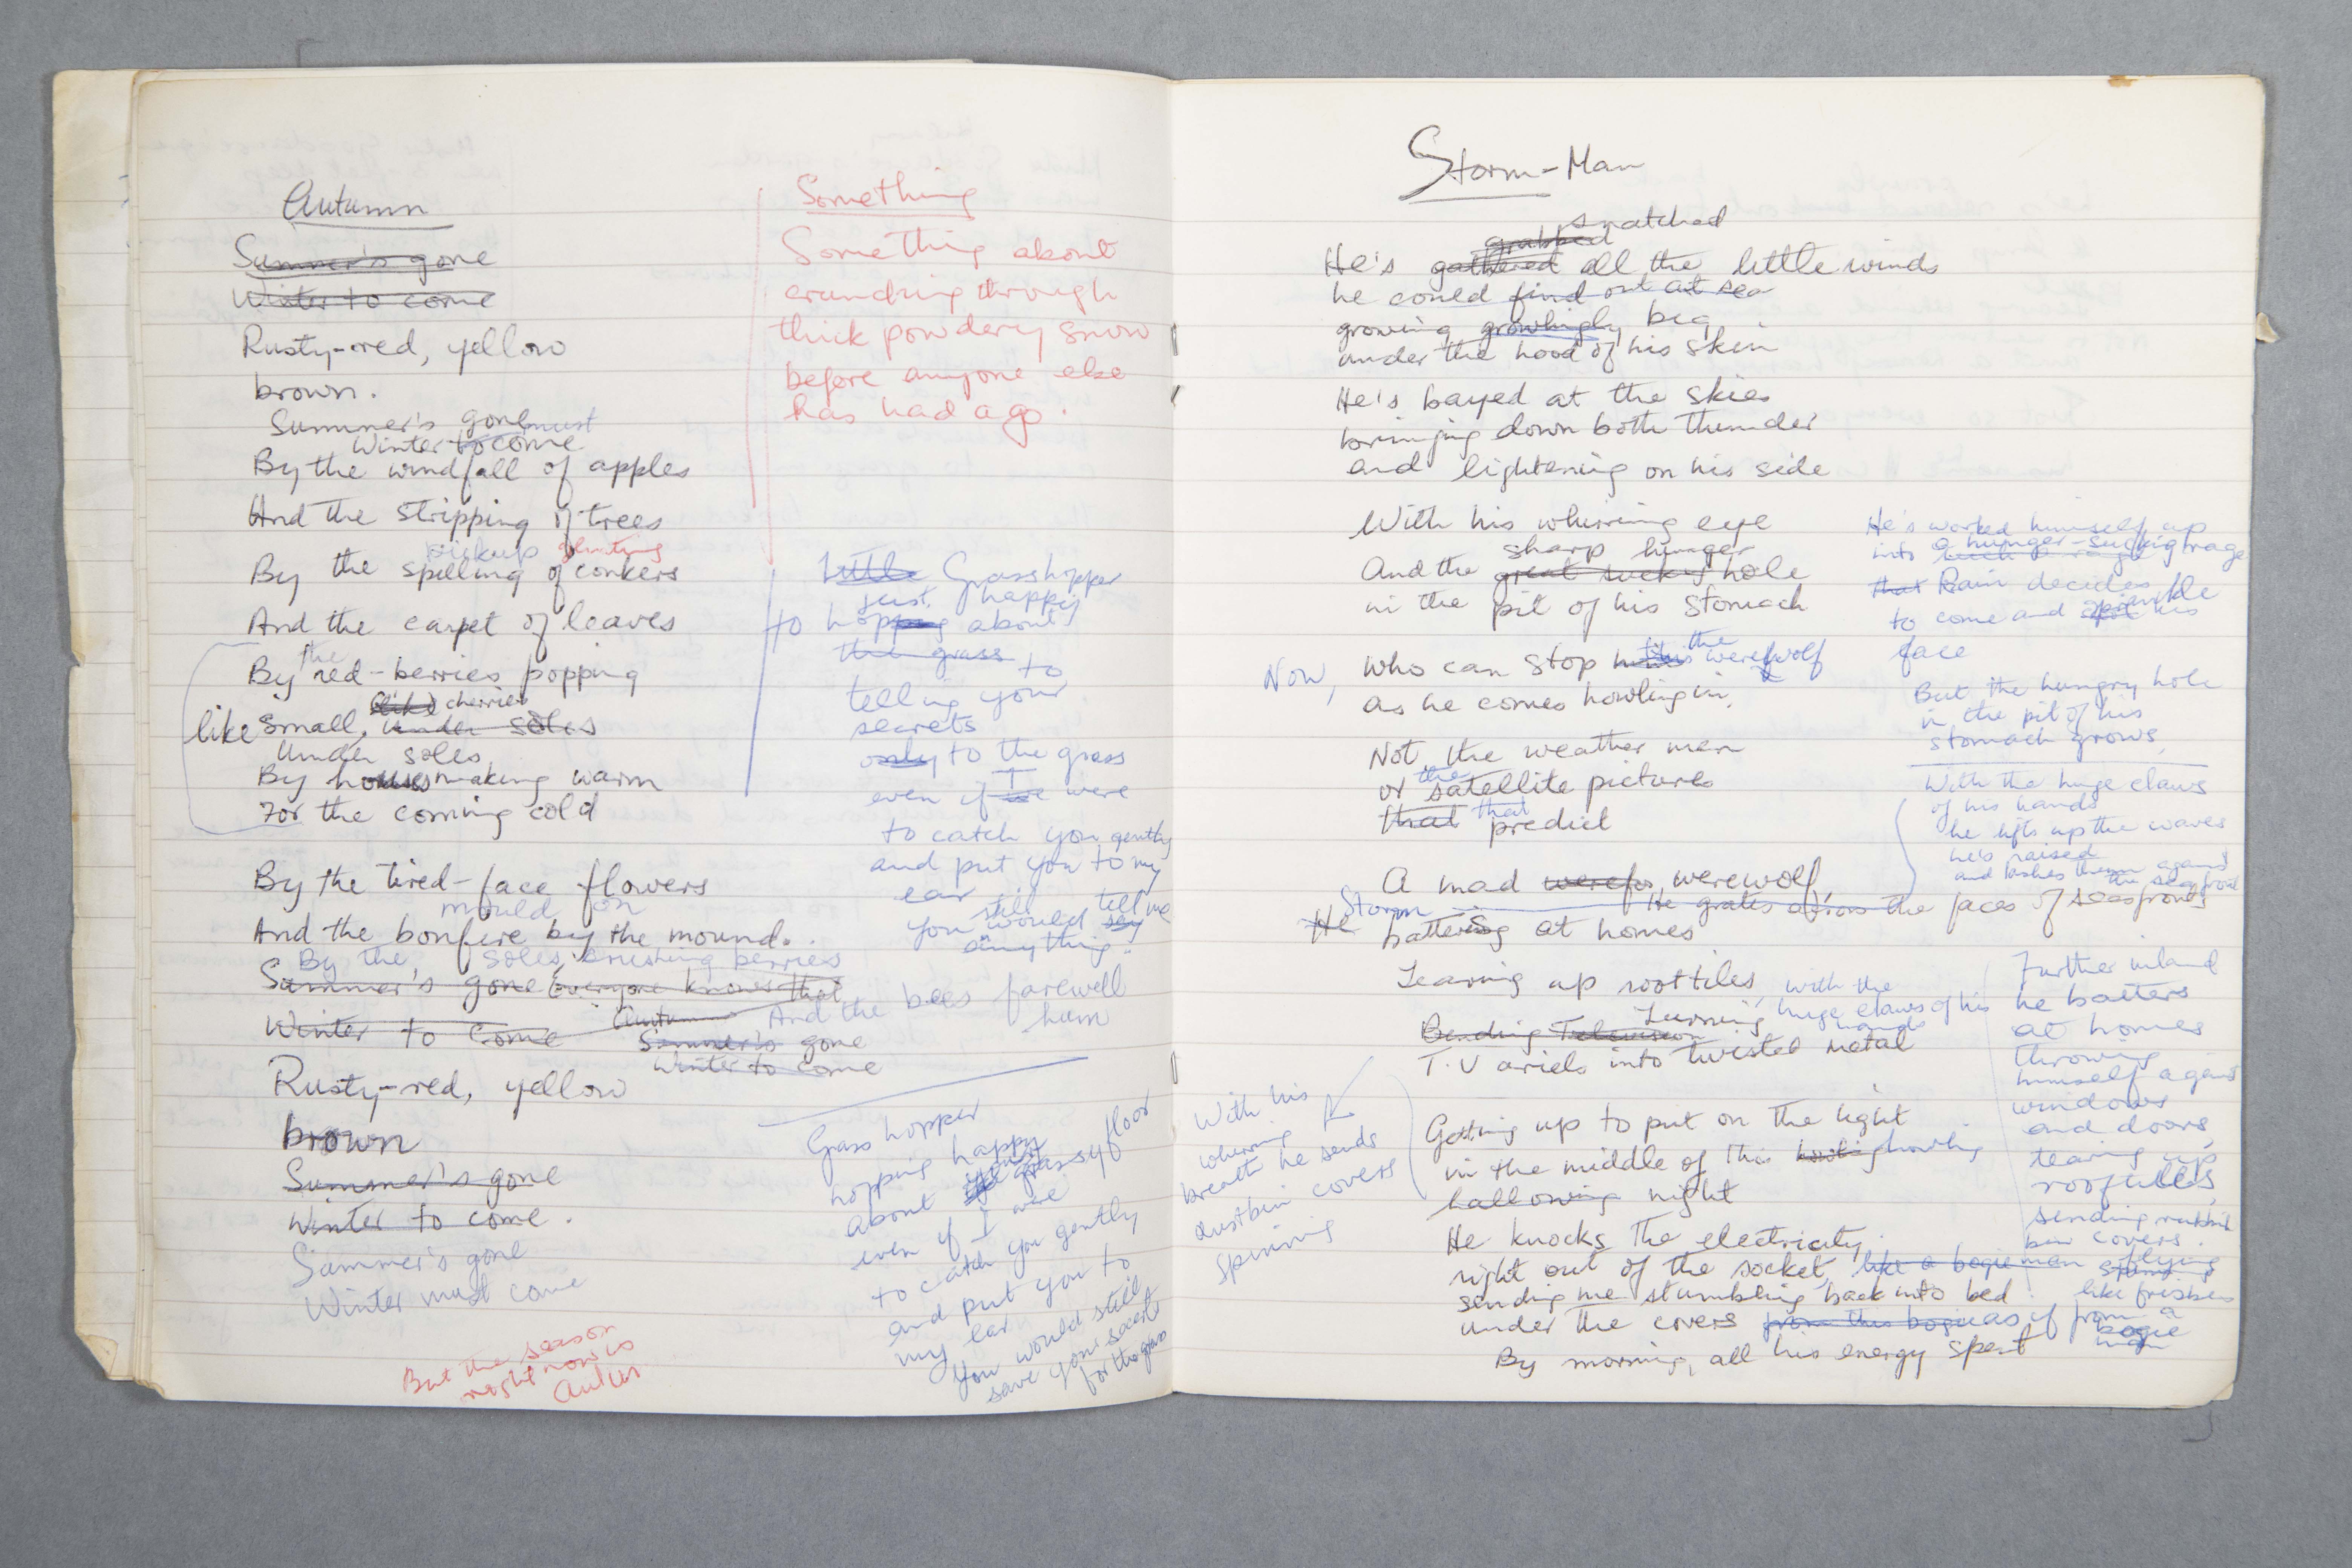 Autumn
Summer's gone
Winter to come
Rusty-red, yellow
brown.
Summer's gone must
Winter to come
By the windfall of apples
And the stripping of trees
pickup glinting
By the spilling of conkers
And the carpet of leaves
the
By red-berries popping
(like) cherries
like small, under soles
under soles
By houses making warm
For the coming cold
By the tired-face flowers
mould on
And the bonfire by the mound.
By the, soles, crushing berries
Summer's gone everyone knows that
Winter to come Autumn And the bees farewell
hum
Summer's gone
Winter to come
Rusty-red, yellow
brown
Summer's gone
Winter to come.
Summer's gone
Winter must come
But the season
right now is
Something
Something about
crunching through
thick powdery snow
before anyone else
has had a go.
Little Grasshopper
just happy
to hopping about
the grass to
telling your
secrets
only to the grass
I
even if we were
to catch you gently
and put you to my
ear
still tell me
you would say
anything.
Grass hopper
hopping happy
about grassy floor
even if I were
to catch you gently
and put you to
my ear
You would still
save your secrets
for the grass
Storm-Man
snatched
grabbed
He's gathered all the little winds
he could find out at sea
growing growlingly big
under the hood of his skin
He's bayed at the skies
bringing down both thunder
and lightening on his side
With his whirring eye
sharp hunger
And the great sucking hole
in the pit of his stomach
the
Now, who can stop this werewolf
as he comes howling in,
Not the weather man
the
or satellite pictures
that that predict
A mad werewolf,
He grates across the faces of seafronts
Storm
He battering at homes
Tearing up roof tiles, with the
huge claws of his
hands
Turning
Bending Television
T.V ariels into twisted metal
Getting up to put on the light
in the middle of this howling howling
hallowing night
He knocks the electricity
right out of the socket, like a bogie man
sending me stumbling back into bed
under the covers from this bogie as if from a
bogie
man
By morning, all his energy spent
He's worked himself up
into a hunger-sucking rage
that Rain decides
to come and spit his
face
But the hungry hole
in the pit of his
stomach grows,
With the huge claws
of his hands
he lifts up the waves
he's raised
and lashes them against
the seafront
Further inland
he batters
at homes
throwing
himself against
windows
and doors,
tearing up
rooftiles,
sending rubbish
bin covers.
flying
spinning
like frisbees
With his
whirring
breath he sends
dustbin covers
spinning